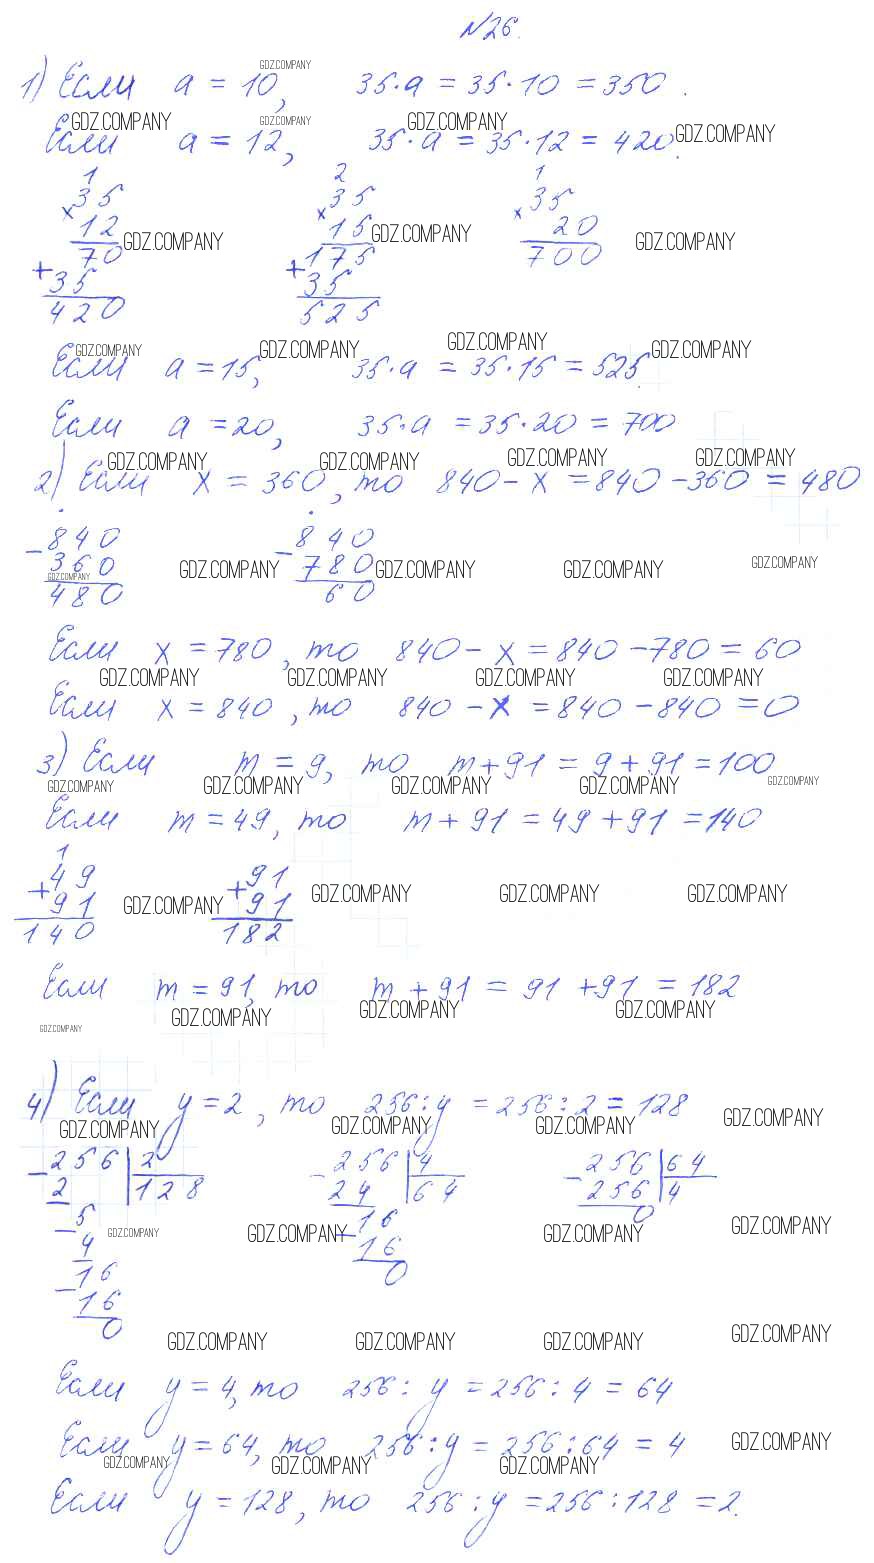 №26.
1) Если a = 10, 35·a = 35·10 = 350.
Если a = 12, 35·a = 35·12 = 420.
1 2 1
35 35 35
× 12 × 15 × 20
70 175 700
+ 35 + 35
420 525
Если a = 15, 35·a = 35·15 = 525.
Если a = 20, 35·a = 35·20 = 700
2) Если x = 360, то 840 - x = 840 - 360 = 480
- 840 - 840
360 780
480 60
Если x = 780, то 840 - x = 840 - 780 = 60
Если x = 840, то 840 - x = 840 - 840 = 0
3) Если m = 9, то m + 91 = 9 + 91 = 100
Если m = 49, то m + 91 = 49 + 91 = 140
1
+ 49 + 91
91 91
140 182
Если m = 91, то m + 91 = 91 + 91 = 182
4) Если y = 2, то 256 : y = 256 : 2 = 128
- 256 | 2 - 256 | 4 - 256 | 64
2 | 128 24 | 64 256 | 4
- 5 - 16 0
4 16
- 16 0
16
0
Если y = 4, то 256 : y = 256 : 4 = 64
Если y = 64, то 256 : y = 256 : 64 = 4
Если y = 128, то 256 : y = 256 : 128 = 2.
GDZ.COMPANY